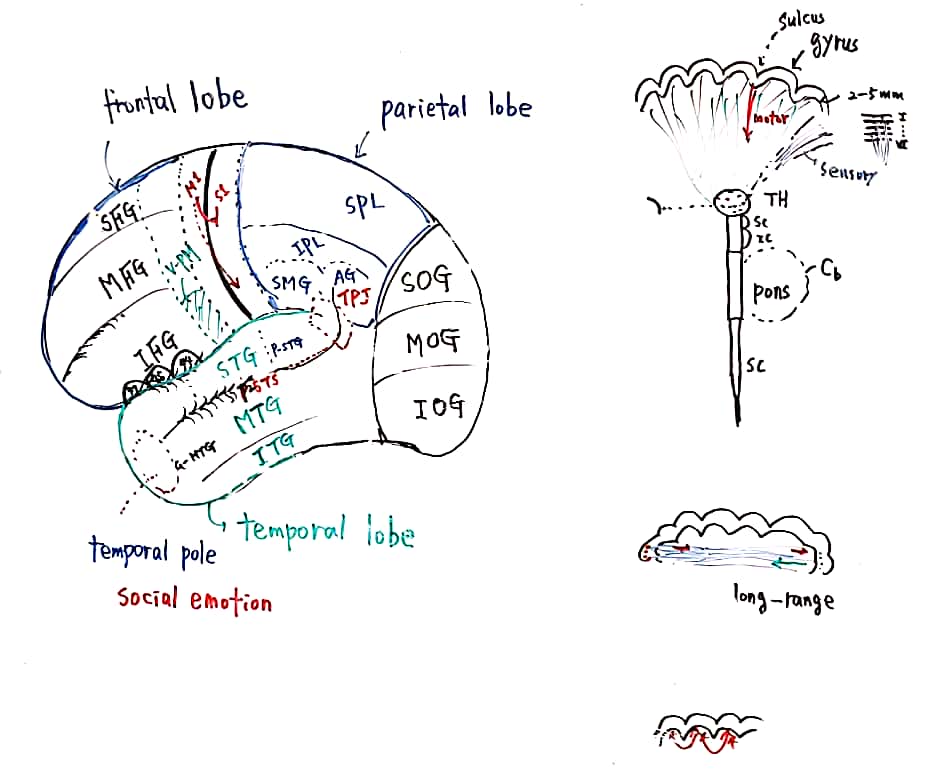 frontal lobe
parietal lobe
SFG
M1
S1
SPL
MFG
V-PM
IPL
SMG
AG
TPJ
SOG
IFG
STG
P-STG
MOG
pSTS
MTG
IOG
a-MTG
ITG
temporal lobe
temporal pole
social emotion
sulcus
gyrus
2-5mm
motor
I
VI
sensory
TH
SC
IC
Cb
pons
SC
long-range